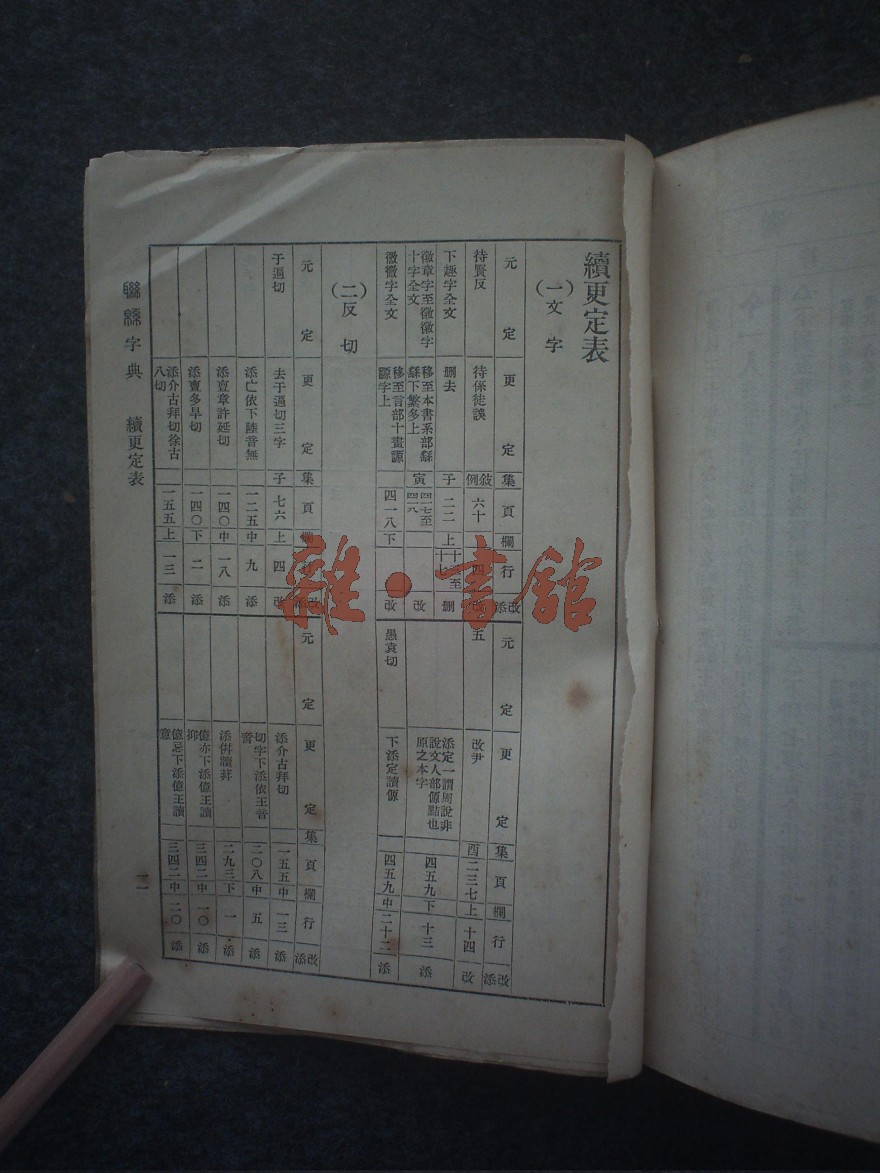 續更定表
(一)文字
元定 更定 集 頁 欄 行 改添
待賢反 待係徒誤 敘例 六十
下趣字全文 删去 子 二二 上 删
徽章字至徽徽字十字全文 移至本書系部繇繇下繁多上 寅 改
徽徽字全文 移至言部十畫謜謜字上 四一八 下 改
元定 更定 集 頁 欄 行 改添
五 改尹 酉 二三七 上 十四 改
添定一謂周說非說文人部傆黠也原之本字 四五九 下 十三 添
愚袁切 下添定讀傆 四五九 中 二十二 添
(二)反切
元定 更定 集 頁 欄 行 改添
于遏切 去于遏切三字 子 七六 上 四 改
添亡依下陸音無 一二五 中 九 添
添亶章許延切 一四〇 中 一八 添
添亶多旱切 一四〇 下 二 添
添介古拜切徐古八切 一五五 上 一三 添
元定 更定 集 頁 欄 行 改添
添介古拜切 一五五 中 一三 添
切字下添依王音 二〇八 中 五 添
添併讀並 二九三 下 一 添
億亦下添億王讀抑 三四二 中 一〇 添
億忌下添億王讀意 三四二 中 二〇 添
聯緜字典 續更定表
二
雜·書館